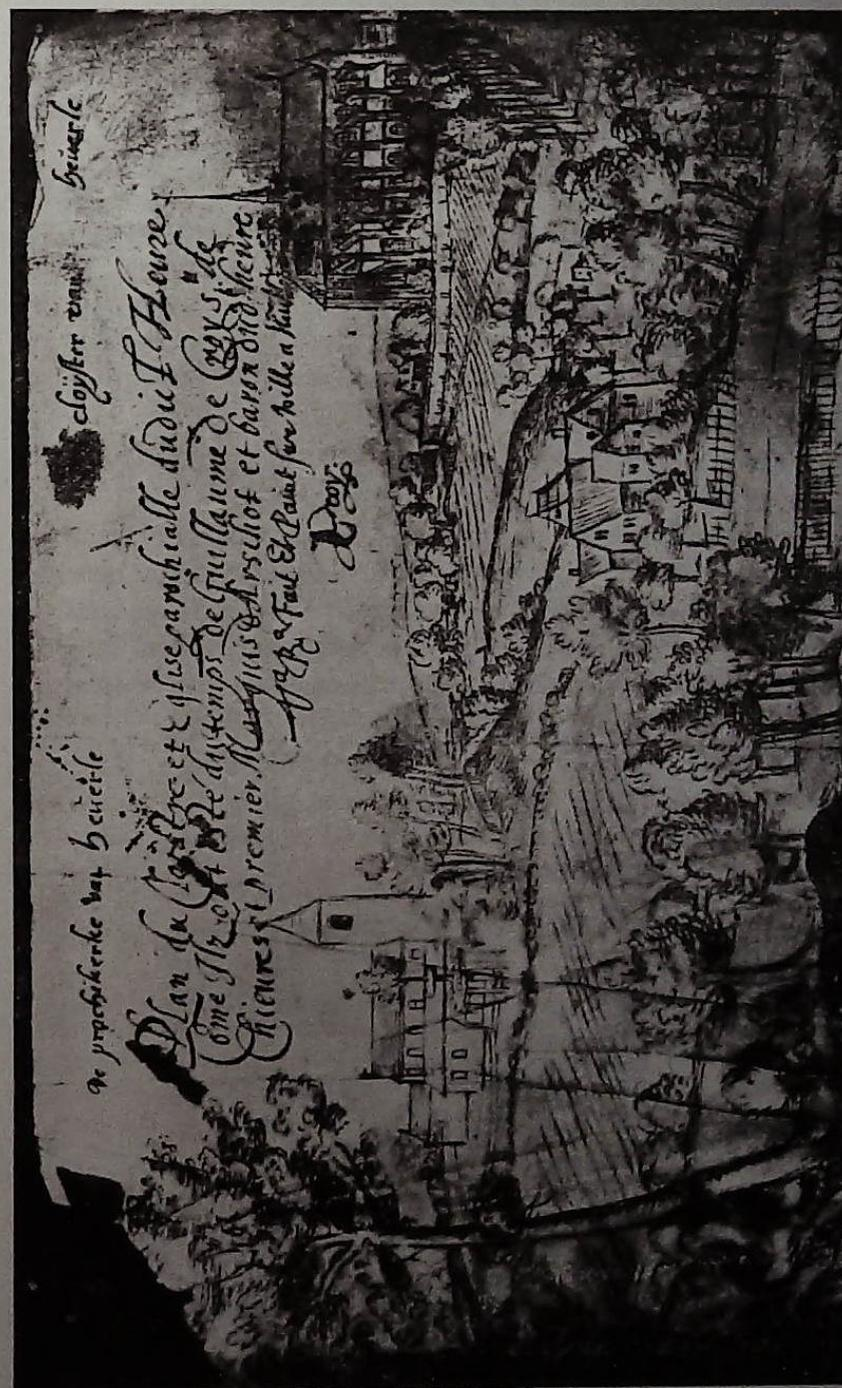 De prochikerke van heuerle
cloÿster van heuerle
Plan du Cloistre et Eglise parochialle dudict Heure
Côme Ilz ont esté du temps de Guillaume de Croys. de
Chieures et premier Marquis d'Arschot et baron dud. heure
Fait Et Paint sur